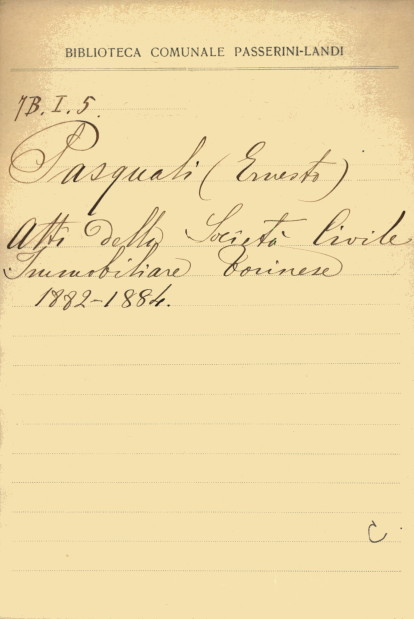 BIBLIOTECA COMUNALE PASSERINI-LANDI
7B. I. 5.
Pasquali (Ernesto)
Atti della Società Civile
Immobiliare torinese
1882-1884.
C.